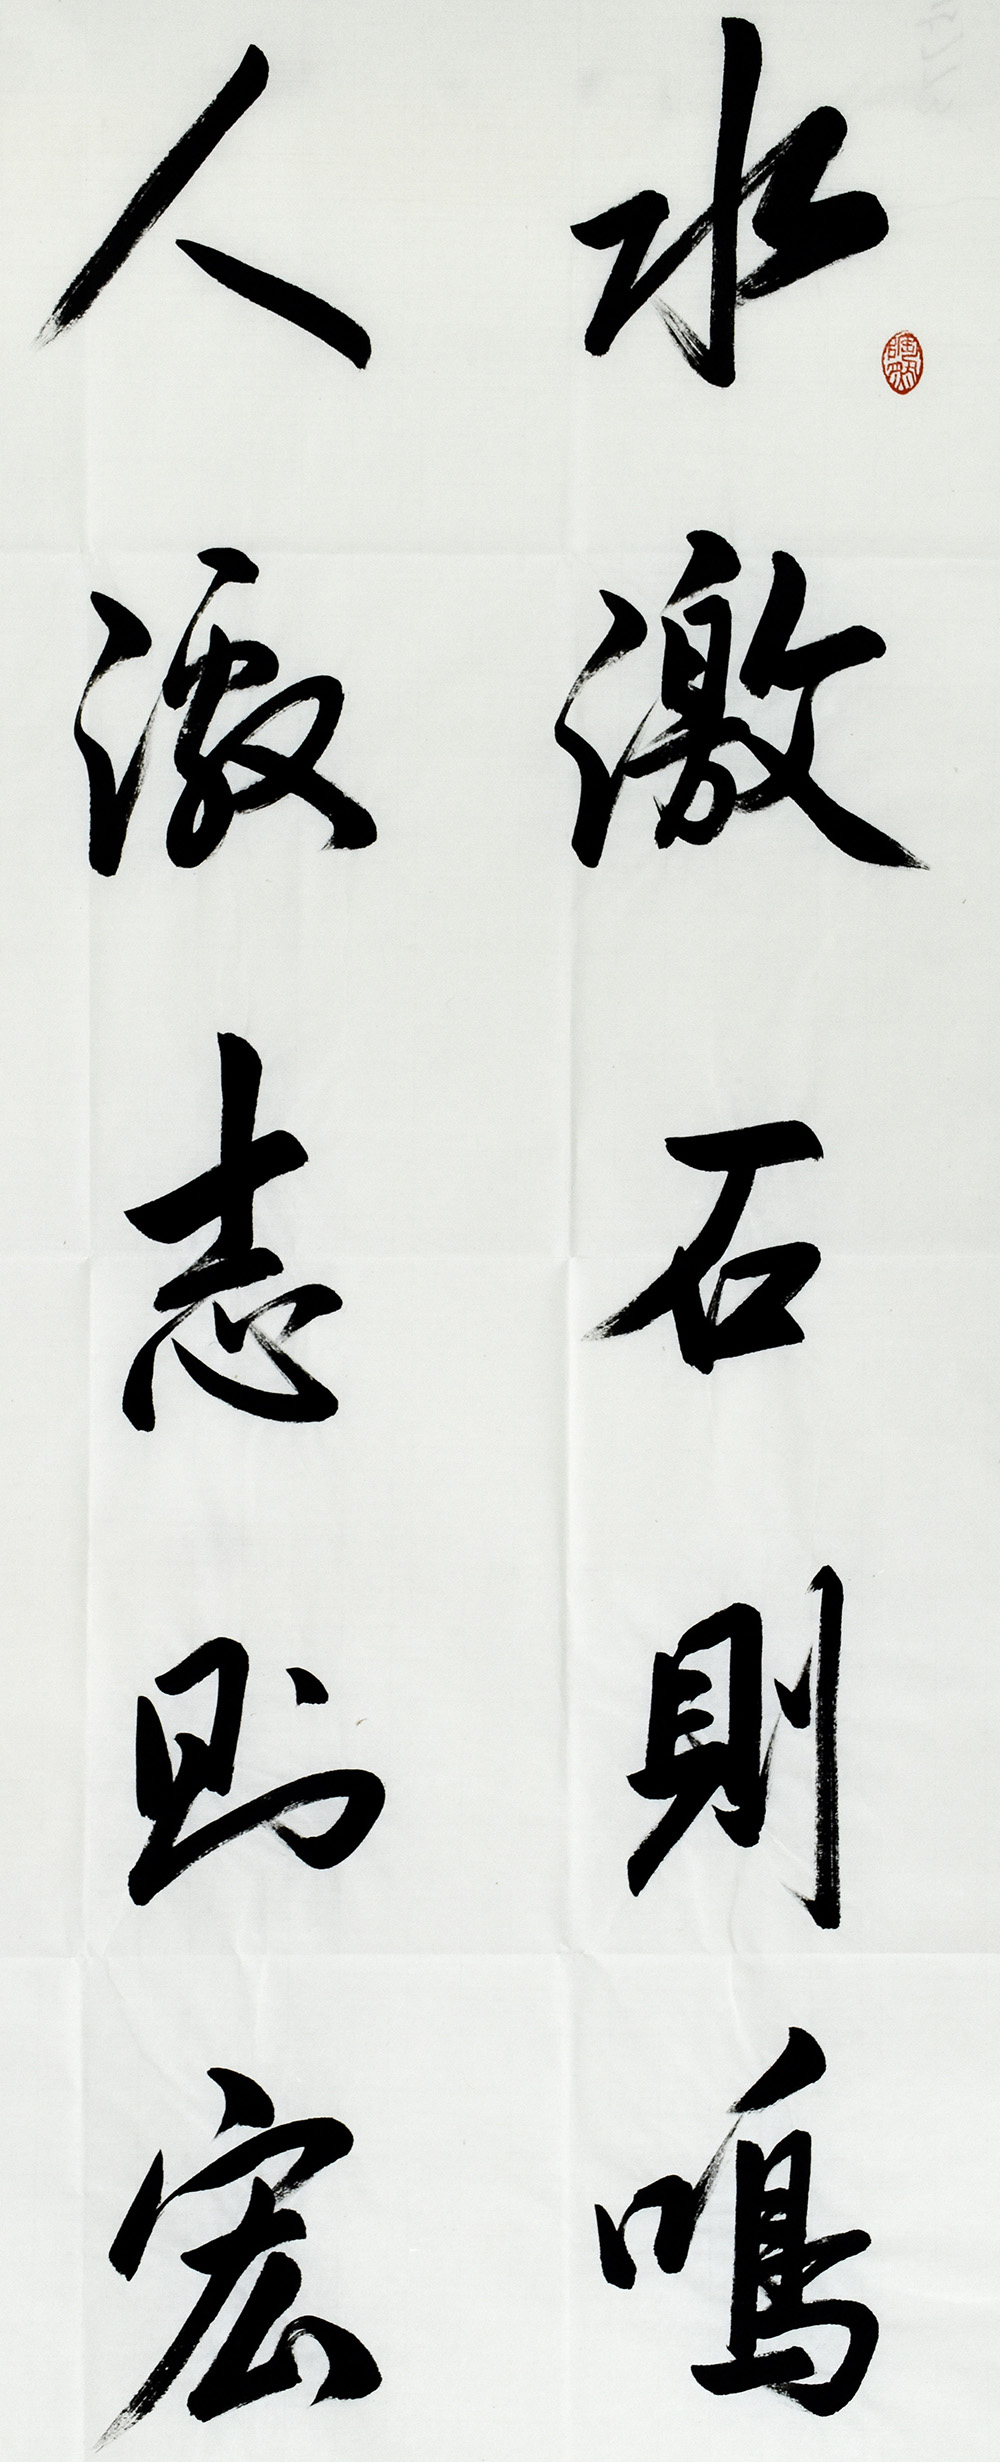 水激石則鳴
人激志则宏